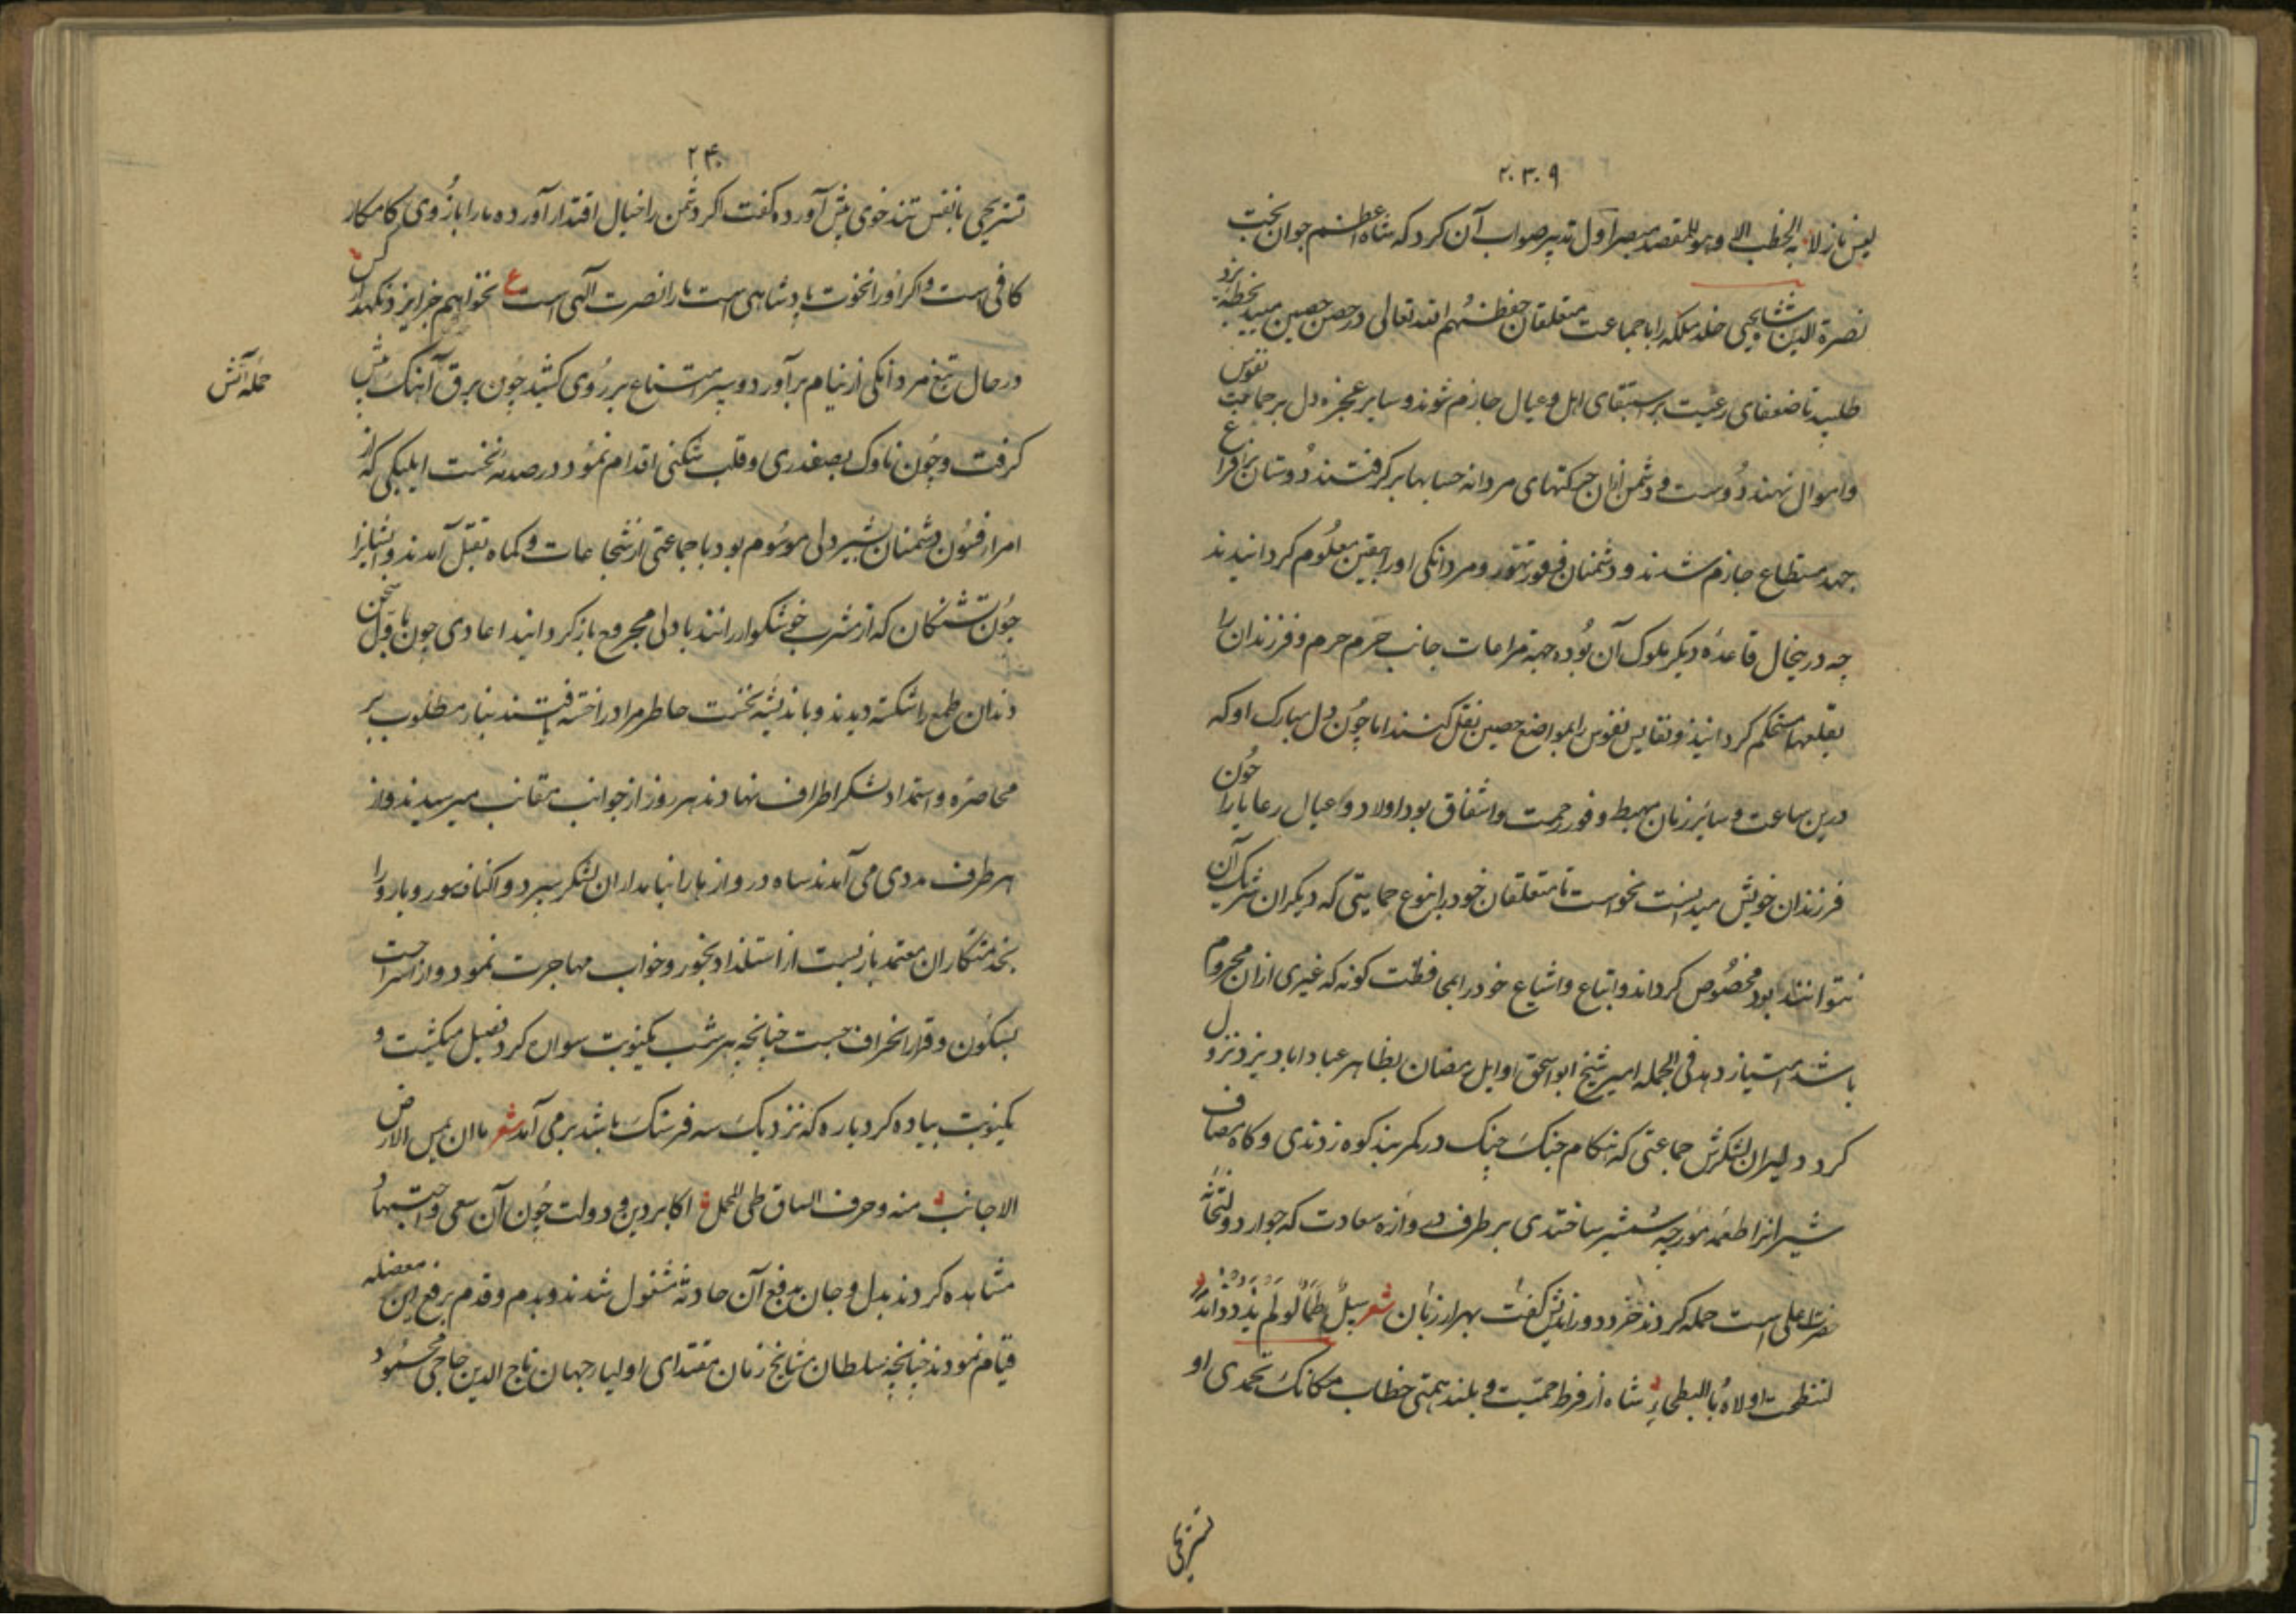 ۲۳۹
لیس نازلا به الخطب الا و هو للمقصد مبصر اول تدبیر صواب آن کرد که شاه اعظم جوان بخت
نصرة الدین شاه یحیی خلد ملکه را با جماعت متعلقان حفظهم الله تعالی در حصن حصین میبد بخطه یزد
طلبید تا ضعفای رعیت بر استبقای اهل و عیال جازم شوند و سایر عجزه دل بر حمایت نفوس
و اموال نهند دوست و دشمن ازان حرکتهای مردانه حسابها برگرفتند دوستان بر افراغ
جهد مستطاع جازم شدند و دشمنان فرط تهور و مردانکی او را بیقین معلوم کردانیدند
چه درینحال قاعدۀ دیکر ملوک آن بوده جهة مراعات جانب حرم حرم و فرزندان را
بقلعها مستحکم کردانیدند و نفایس نفوس را بمواضع حصین نقل کنند اما چون دل مبارک او که
درین ساعت و سایر زمان مهبط وفور رحمت و اشفاق بود اولاد و عیال رعایا را چون
فرزندان خویش میدانست نخواست تا متعلقان خود را بنوع حمایتی که دیکران شریک آن
نتوانند بود مخصوص کرداند و اتباع و اشیاع خود را بمحافظت کونه که غیری ازان محروم
باشد امتیاز دهد فی الجمله امیر شیخ ابو اسحق اوایل رمضان بظاهر عباداباد یزد نزول
کرد دلیران لشکرش جماعتی که هنکام جنک چنک در کمر بند کوه زدندی و کاه مصاف
شیرانرا طعمه مورچه شمشیر ساختندی بر طرف دروازه سعادت که جوار دولتخانه
حضرت اعلی است حمله کردند خرد دوراندیش کفت بهزار زبان شعر سیل طما لو لم یذده ذائد
لتنطحت اولاه بالبطحاء شاه از فرط حمیت و بلند همتی خطاب مکانک تحمدی او
تستریحی
۲۴۰
تستریحی با نفس تندخوی پیش آورده کفت اکر دشمن را خیال اقتدار آورده ما را بازوی کامکار
کافی است و اکر او را نخوت پادشاهی است ما را نصرت آلهی است ع نخواهم جز ایزد نکهدار کس
در حال تیغ مردانکی از نیام برآورد و سپر امتناع بر روی کشید چون برق آهنک پیش
حمله آتش
کرفت و چون ناوک بصفدری و قلب شکنی اقدام نمود در صدمۀ نخست ایلبکی که از
امرا فنون دشمنان بشیر دلی موسوم بود با جماعتی از شجاعات و کماه بقتل آمدند و ایشانرا
چون تشنکان که از مشرب خوشکوار رانند با دلی مجروح باز کردانید اعادی چون باول سخن
دندان طمع را شکسته دیدند و باندیشه نخست خاطر مراد را خسته یافتند بنا مطلوب بر
محاصره و استمداد لشکر اطراف نهادند هر روز از جوانب مقانب میرسیدند و از
هر طرف مددی می آمدند شاه دروازها را بنامداران لشکر سپرد و اکناف سور و بارو را
بخدمتکاران معتمد بازبست از استلذاد بخور و خواب مهاجرت نمود و از استراحت
بسکون و قرار انحراف جست چنانچه هر شب یکنوبت سواره کرد فصیل میکشت و
یکنوبت پیاده کرد باره که نزدیک سه فرسنک باشد برمی آمد شعر ما ان یمس الارض
الا جانب منه و حرف الساق طی المحمل اکابر دین و دولت چون آن سعی و اجتهاد
مشاهده کردند بدل و جان بدفع آن حادثه مشغول شدند و بدم و قدم برفع این معضله
قیام نمودند چنانچه سلطان مشایخ زمان مقتدای اولیاء جهان تاج الدین حاجی محمود